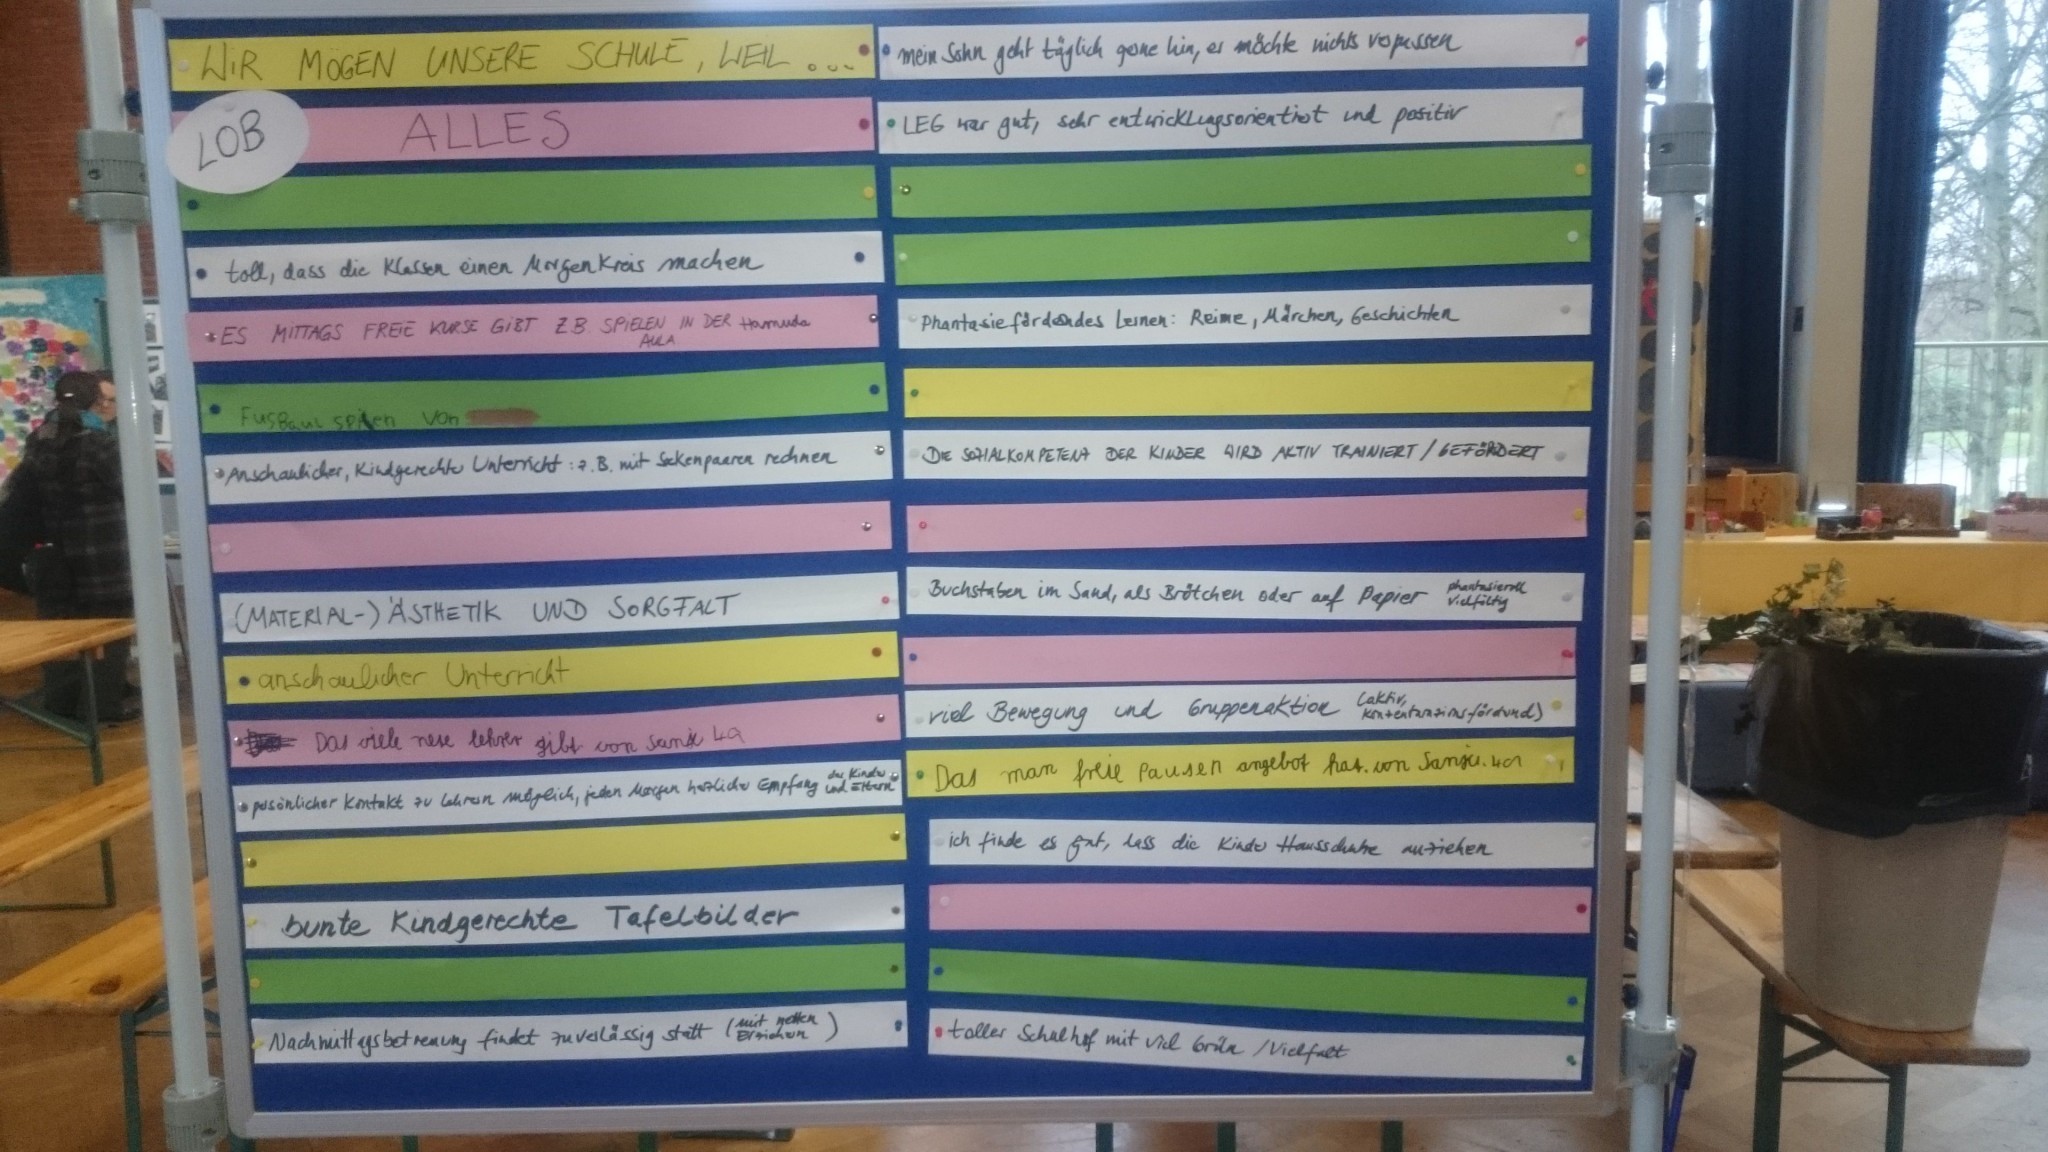 WIR MÖGEN UNSERE SCHULE, WEIL ...
LOB
ALLES
toll, dass die Klassen einen Morgenkreis machen
ES MITTAGS FREIE KURSE GIBT Z.B. SPIELEN IN DER Hamuda
AULA
Fusbaul spilen von
Anschaulicher, Kindgerechte Unterricht: z.B. mit Sockenpaaren rechnen
(MATERIAL-) ÄSTHETIK UND SORGFALT
anschaulicher Unterricht
Das viele nese lehrer gibt von 4a
persönlicher Kontakt zu Lehrern möglich, jeden Morgen herzlicher Empfang der Kinder
und Eltern
bunte Kindgerechte Tafelbilder
Nachmittagsbetreuung findet zuverlässig statt (mit netten
Erziehern)
mein Sohn geht täglich gerne hin, er möchte nichts verpassen
LEG war gut, sehr entwicklungsorientirt und positiv
Phantasiefördendes Lernen: Reime, Märchen, Geschichten
DIE SOZIALKOMPETENZ DER KINDER WIRD AKTIV TRAINIERT / GEFÖRDERT
Buchstaben im Sand, als Brötchen oder auf Papier phantasievoll
vielfältig
viel Bewegung und Gruppenaktion (aktiv,
konzentrationsfördernd)
Das man freie Pausen angebot hat. von 4a
ich finde es gut, dass die Kinder Hausschuhe anziehen
toller Schulhof mit viel Grün / Vielfalt